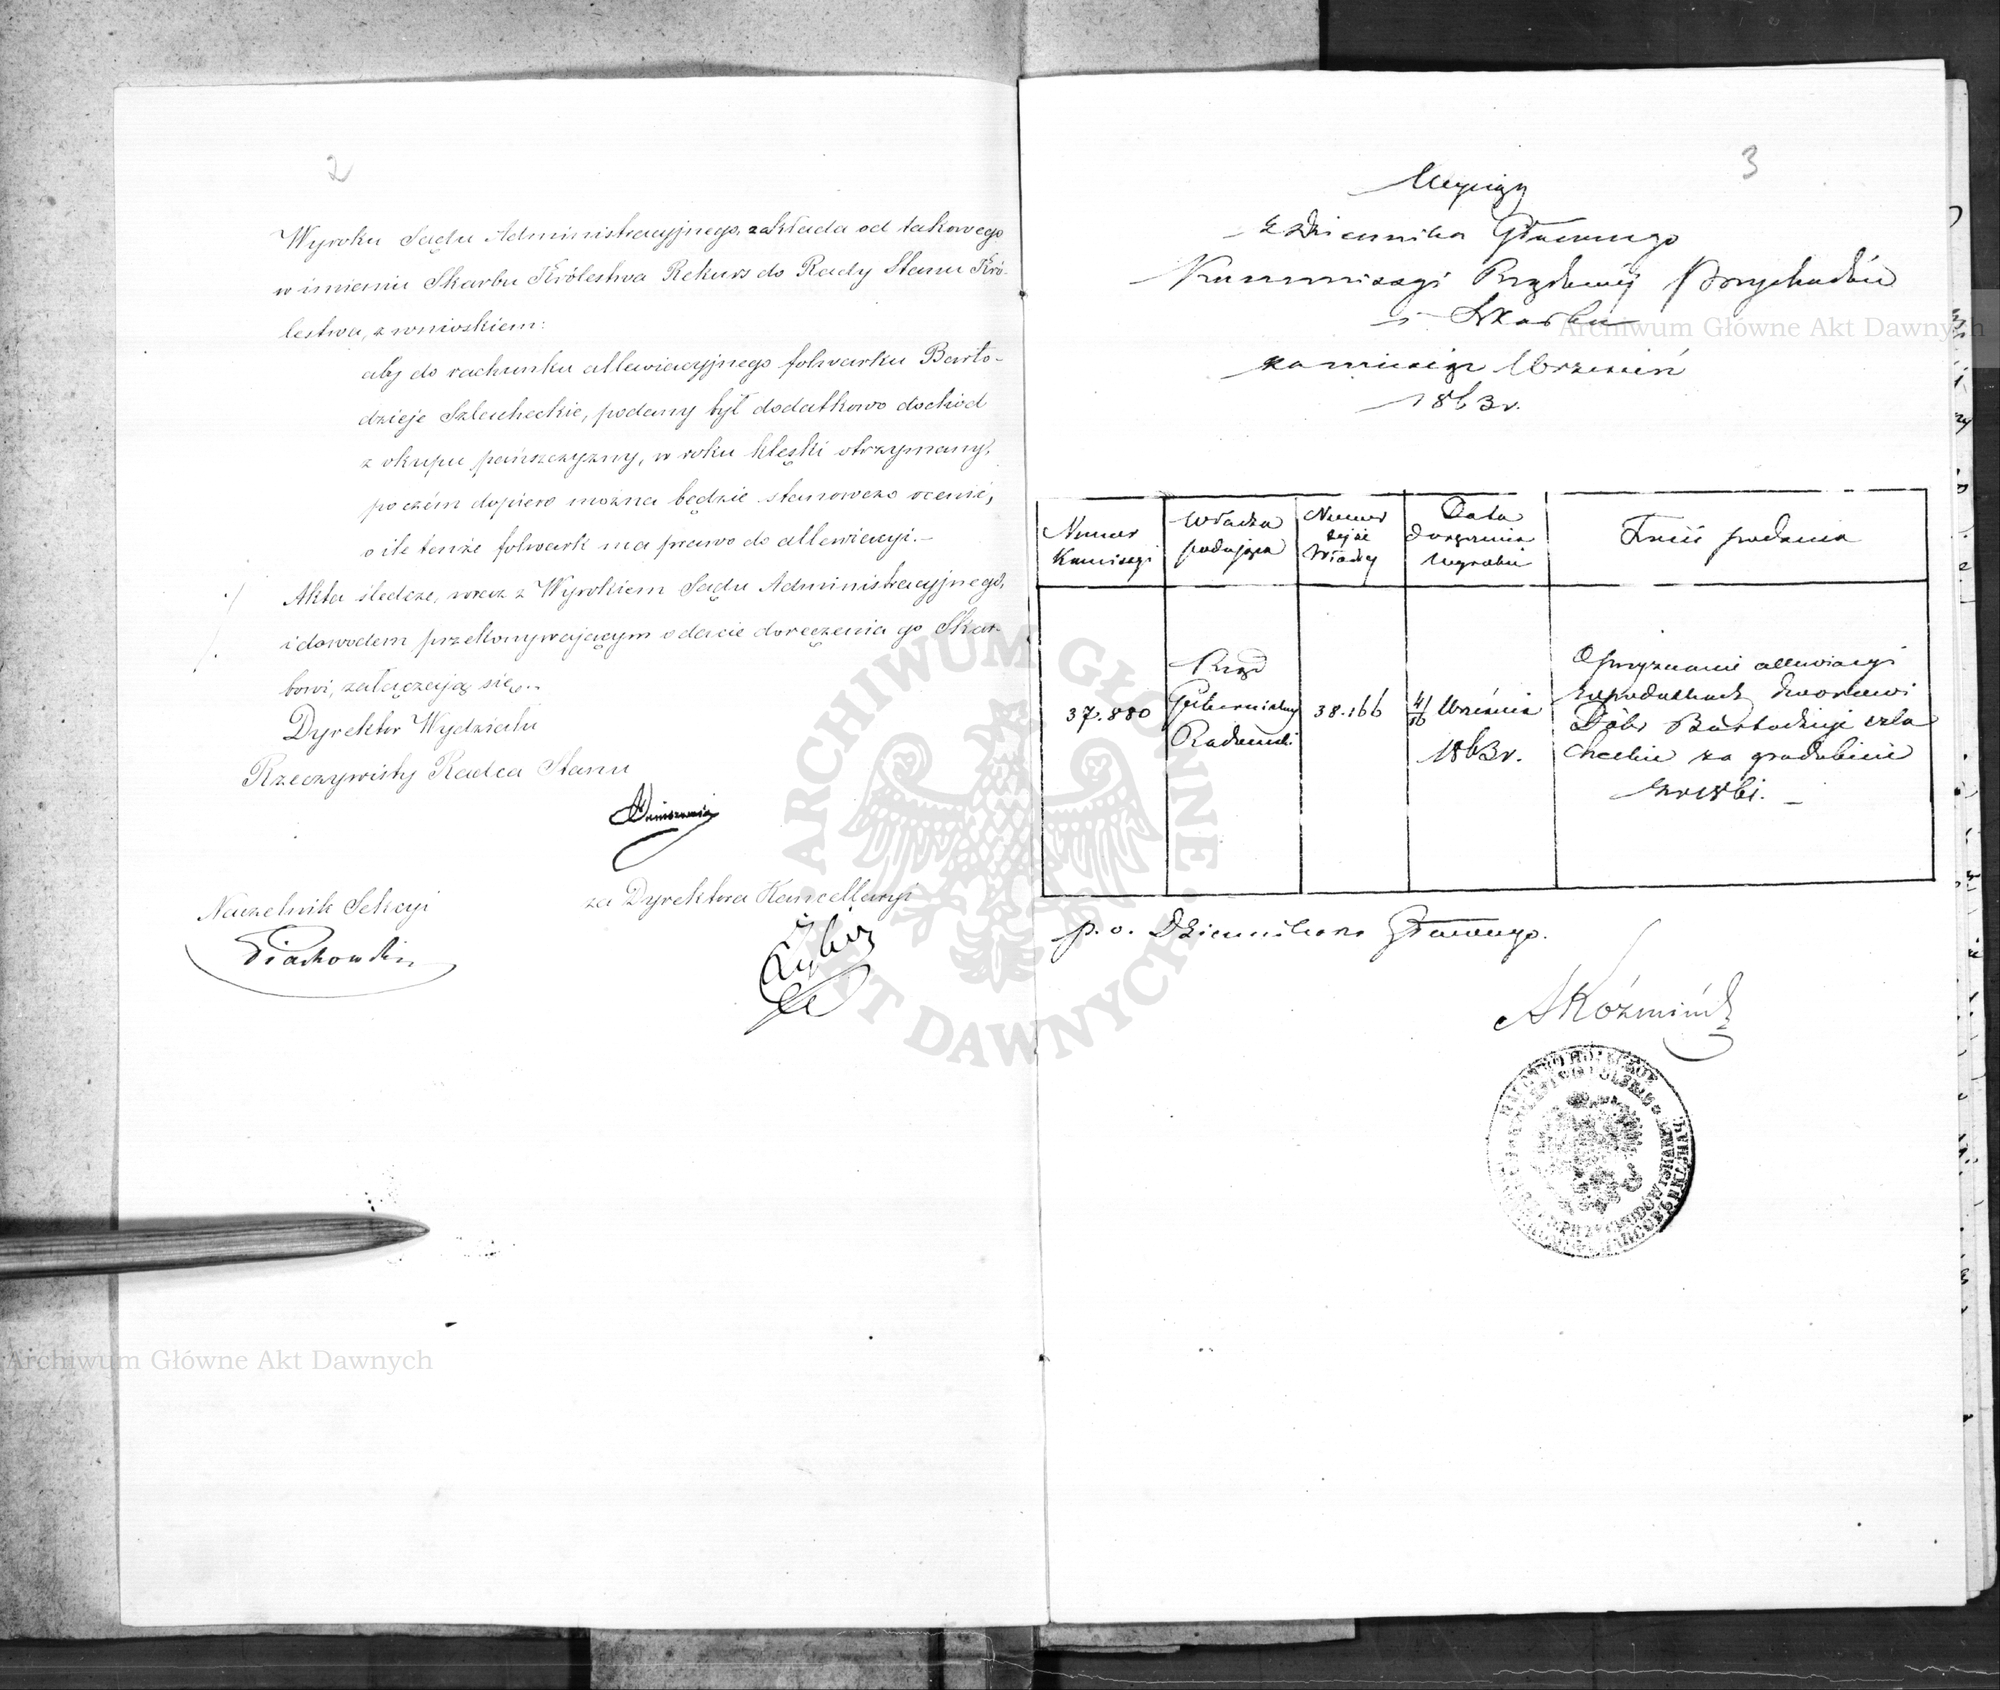 2
Wyroku Sądu Administracyjnego, zakłada od takowego
w imieniu Skarbu Królestwa Rekurs do Rady Stanu Kró-
lestwa, z wnioskiem:
aby do rachunku allewiacyjnego folwarku Barto-
dzieje Szlacheckie, podany był dodatkowo dochód
z okupu pańszczyzny, w roku klęski otrzymany,
poczém dopiero można będzie stanowczo ocenić,
o ile tenże folwark ma prawo do allewiacyi.-
Akta śledcze, wraz z Wyrokiem Sądu Administracyjnego,
i dowodem przekonywającym o dacie doręczenia go Skar-
bowi, załączają się.-
Dyrektor Wydziału
Rzeczywisty Radca Stanu
Naczelnik Sekcyi
Piachowski
za Dyrektora Kancellaryi
3
Wyciąg
z Dziennika Głównego
Kommissyi Rządowéj Przychodów
i Skarbu
za miesiąc Wrzesień
1863 r.
Numer
Komissyi
Władza
podająca
Numer
tejże
Władzy
Data
doręczenia
Wyroku
Treść podania
37.880
Rząd
Gubernialny
Radomski
38.166
4/16 Września
1863 r.
O przyznanie allewiacyi
w podatkach dworowi
Dóbr Bartodzieje szla
checkie za gradobicie
z r. 1861. -
p. o. Dziennikarza Głównego.
AKoźmiński
Archiwum Główne Akt Dawnych
Archiwum Główne Akt Dawnych
ARCHIWUM GŁÓWNE AKT DAWNYCH